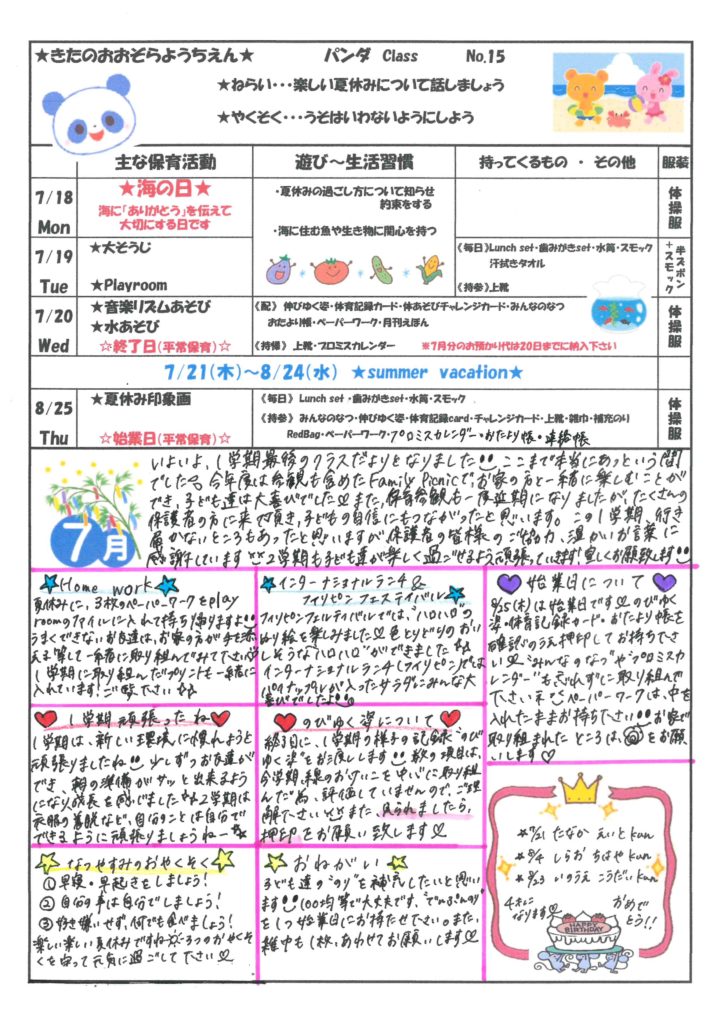 ★きたのおおぞらようちえん★ パンダ Class No.15
★ねらい・・・楽しい夏休みについて話しましょう
★やくそく・・・うそはいわないようにしよう
主な保育活動 遊び～生活習慣 持ってくるもの ・ その他 服装
7/18
Mon
★海の日★
海に「ありがとう」を伝えて
大切にする日です
・夏休みの過ごし方について知らせ
約束をする
・海に住む魚や生き物に関心を持つ
体操服
7/19
Tue
★大そうじ
★Playroom
《毎日》Lunch set・歯みがきset・水筒・スモック
汗拭きタオル
《持参》上靴
半ズボン+スモック
7/20
Wed
★音楽リズムあそび
★水あそび
☆終了日(平常保育)☆
《配》 伸びゆく姿・体育記録カード・体あそびチャレンジカード・みんなのなつ
おたより帳・ペーパーワーク・月刊えほん
《持帰》 上靴・プロミスカレンダー ※7月分のお預かり代は20日までに納入下さい
体操服
7/21(木)～8/24(水) ★summer vacation★
8/25
Thu
★夏休み印象画
☆始業日(平常保育)☆
《毎日》 Lunch set ・歯みがきset・水筒・スモック
《持参》 みんなのなつ・伸びゆく姿・体育記録card・チャレンジカード・上靴・雑巾・補充のり
RedBag・ペーパーワーク・プロミスカレンダー・おたより帳・連絡帳
体操服
7月
いよいよ、1学期最後のクラスだよりとなりました ここまで本当にあっという間
でした 今年度は参観も含めたFamily Picnicで、お家の方と一緒に楽しむことが
でき、子ども達は大喜びでした また、保育参観も一度延期になりましたが、たくさんの
保護者の方に来て頂き、子どもの自信にもつながったと思います。この1学期、行き
届かないところもあったと思いますが、保護者の皆様のご協力、温かいお言葉に
感謝しています 2学期も子ども達が楽しく過ごせるよう頑張っていきます!宜しくお願い致します
Home work
夏休みに、3枚のペーパーワークをplay
roomのファイルに入れて持ち帰りますよ
うまくできないお友達は、お家の方が手を添
える等して一緒に取り組んでみて下さい
1学期に取り組んだプリントも一緒に
入れています!ご覧下さい
インターナショナルランチ&
フィリピンフェスティバル
フィリピンフェスティバルでは、"ハロハロ"の
貼り絵を楽しみました 色とりどりのおい
しそうな"ハロハロ"ができました
インターナショナルランチ(フィリピン)では
パイナップルが入ったサラダにみんな大
喜びでしたよ
始業日について
8/25(木)は始業日です のびゆく
姿・体育記録カード・おたより帳を
確認のうえ押印してお持ち下さ
い "みんなのなつ"や"プロミスカ
レンダー"も忘れずに取り組んで
下さいネ ペーパーワークは、中を
入れたままお持ち下さい お家で
取り組まれたところは、をお願
いします
1学期頑張ったね
1学期は、新しい環境に慣れようと
頑張りましたね 少しずつお友達が
でき、朝の準備がサッと出来るよう
になり成長を感じました 2学期は
衣服の着脱など、自分のことは自分で
できるように頑張りましょうねー
のびゆく姿について
終了日に、1学期の様子の記録"のび
ゆく姿"をお渡します 数の項目は、
今学期、線のおけいこを中心に取り組
んだ為、評価していませんので、ご理
解下さい また、見られましたら、
押印をお願い致します
なつやすみのおやくそく
①早寝・早起きをしましょう!
②自分の事は自分でしましょう!
③好き嫌いせず、何でも食べましょう!
楽しい楽しい夏休みですね 3つのおやくそ
くを守って元気に過ごして下さい
おねがい
子ども達の"のり"を補充したいと思い
ます 100均等で大丈夫です、"でんぷんのり"
を1つ始業日にお持たせ下さい。また、
雑巾も1枚、あわせてお願いします
★7/21 たなか えいとkun
★8/4 しらお ちはやkun
★8/23 いのうえ こうだいkun
4才に
なります
おめで
とう!!
HAPPY
BIRTHDAY